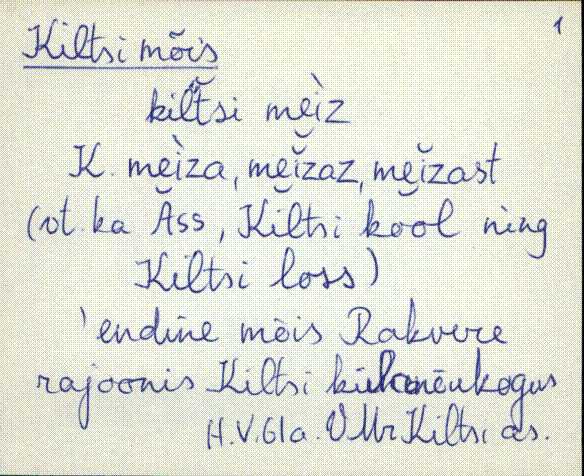 1
Kiltsi mõis
kilt̆si mei̇̀z
K. meìza, meĭzaz, meĭzast
(vt. ka Ăss, Kĭltsi kŏŏl ning
Kiltsi loss)
'endine mõis Rakvere
rajoonis Kiltsi külanõukogus
H.V. 61a. VMr Kiltsi as.